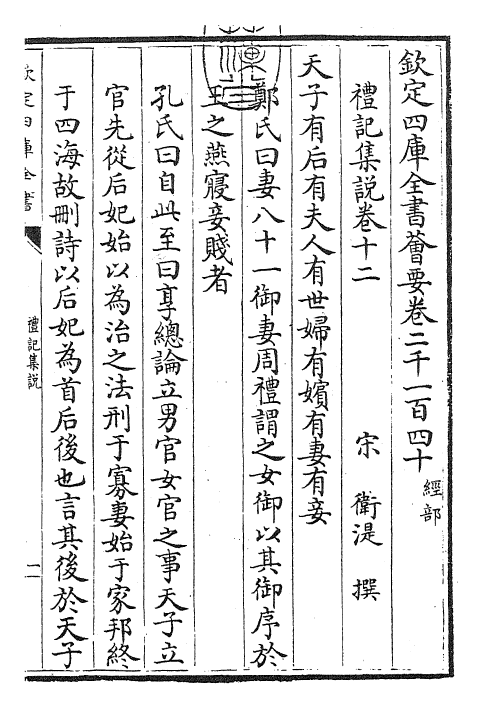 欽定四庫全書薈要卷二千一百四十 經部
禮記集説卷十二
宋 衛湜 撰
天子有后有夫人有世婦有嬪有妻有妾
鄭氏曰妻八十一御妻周禮謂之女御以其御序於
王之燕寢妾賤者
孔氏曰自此至曰享總論立男官女官之事天子立
官先從后妃始以為治之法刑于寡妻始于家邦終
于四海故刪詩以后妃為首后後也言其後於天子
欽定四庫全書
禮記集説
一